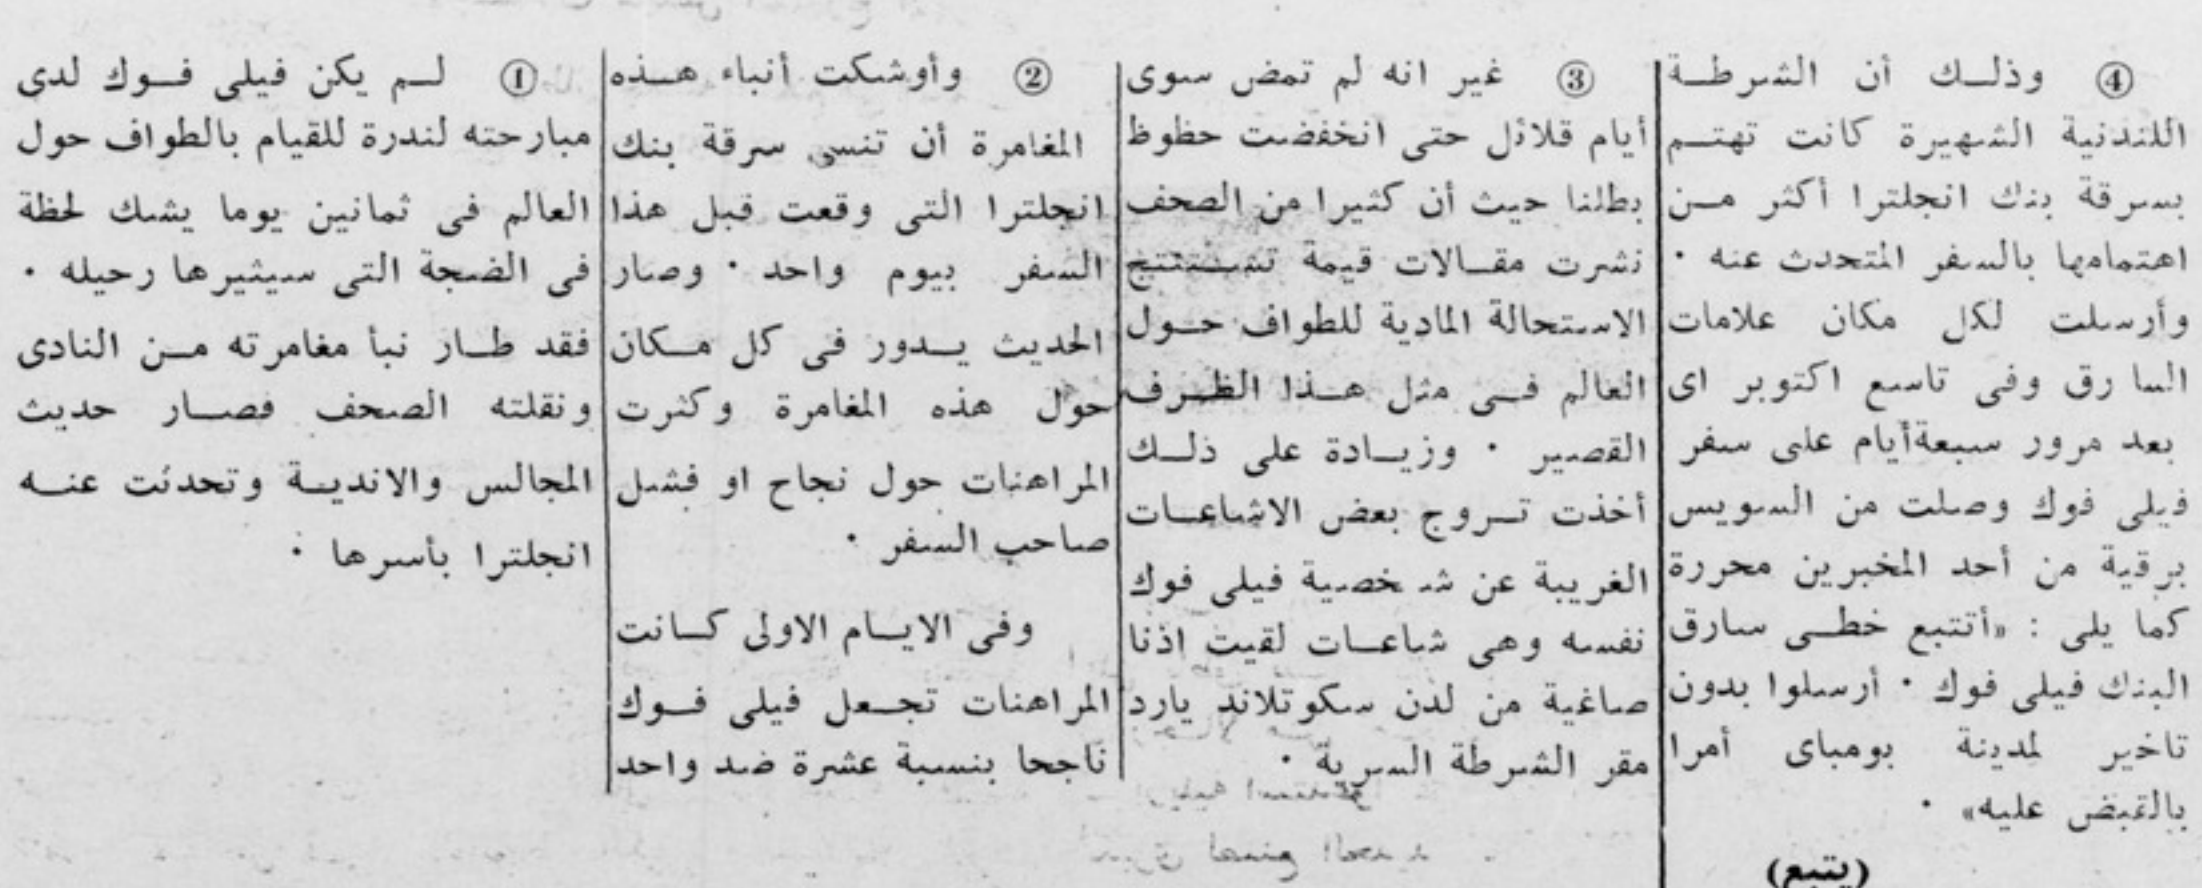 ① لـم يكن فيلى فـوك لدى
مبارحته لندرة للقيام بالطواف حول
العالم فى ثمانين يوما يشك لحظة
فى الضجة التى سيثيرها رحيله ٠
فقد طـار نبأ مغامرته مـن النادى
ونقلته الصحف فصـار حديث
المجالس والانديـة وتحدثت عنـه
انجلترا بأسرها ٠
② وأوشكت أنباء هـذه
المغامرة أن تنسى سرقة بنك
انجلترا التى وقعت قبل هذا
السفر بيوم واحد ٠ وصار
الحديث يـدور فى كل مـكان
حول هذه المغامرة وكثرت
المراهنات حول نجاح او فشل
صاحب السفر ٠
وفى الايـام الاولى كـانت
المراهنات تجـعل فيلى فـوك
ناجحا بنسبة عشرة ضد واحد
③ غير انه لم تمض سوى
أيام قلائل حتى انخفضت حظوظ
بطلنا حيث أن كثيرا من الصحف
نشرت مقـالات قيمة تشـتنتج
الاستحالة المادية للطواف حـول
العالم فـى مثل هـذا الظـرف
القصير ٠ وزيـادة على ذلـك
أخذت تـروج بعض الاشاعـات
الغريبة عن شخصية فيلى فوك
نفسه وهى شاعـات لقيت اذنا
صاغية من لدن سكوتلاند يارد
مقر الشرطة السرية ٠
④ وذلـك أن الشرطـة
اللندنية الشهيرة كانت تهتـم
بسرقة بنك انجلترا أكثر مـن
اهتمامها بالسفر المتحدث عنه ٠
وأرسلت لكل مكان علامات
السا رق وفى تاسع اكتوبر اى
بعد مرور سبعةأيام على سفر
فيلى فوك وصلت من السويس
برقية من أحد المخبرين محررة
كما يلى : «أتتبع خطـى سارق
البنك فيلى فوك ٠ أرسلوا بدون
تاخير لمدينة بومباى أمرا
بالقبض عليه» ٠
(يتبع)